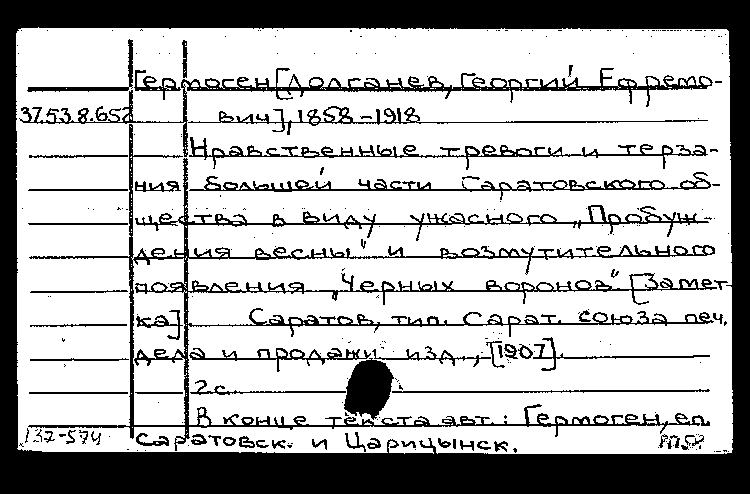 Гермоген [Долганев, Георгий Ефремо-
37.53.8.652 вич], 1858-1918
Нравственные тревоги и терза-
ния большей части Саратовского об-
щества в виду ужасного „Пробуж-
дения весны" и возмутительного
появления „Черных воронов" [Замет-
ка]. Саратов, тип. Сарат. союза печ.
дела и продажи изд., [1907].
2 с.
В конце текста авт.: Гермоген, еп.
137-574 Саратовск. и Царицынск.